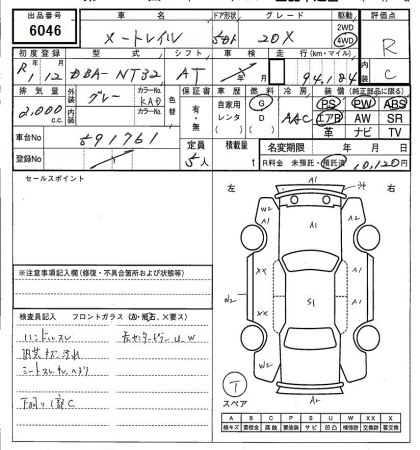 出品番号 車名 ドア形状 グレード 駆動 評価点
6046 エクストレイル 5D 20X 2WD 4WD R
初度登録 型式 シフト 車検 走行(km・マイル) 内装
R1.12 DBA-NT32 AT 年 月 94,184 C
排気量 外装 カラーNo. 色替 保証書 車歴 燃料 冷房 装備(純正部品に限る)
2,000 c.c. グレー KAD 有・無 自家用 G AAC PS PW ABS
内装 カラーNo. レンタ D エアB AW SR
( ) ( ) 革 ナビ TV
車台No 591761 定員 積載量 名変期限 年 月 日
登録No 5人 t R料金 未預託・預託済 10,120円
セールスポイント
左 右
A1
W2 A1 A2
A1
※注意事項記入欄(修復・不具合箇所および状態等)
XX XX A1
W2 S1
検査員記入 フロントガラス(A・飛石、×要ス)
ハンドルスレ
内装キズ汚れ
シートスレ
下回り1部C
W2 A2
T A1
スペア A2
A B C P S U W XX X
線キズ 要板金 腐蝕 要塗装 サビ 凹凸 補修跡 交換跡 要交換